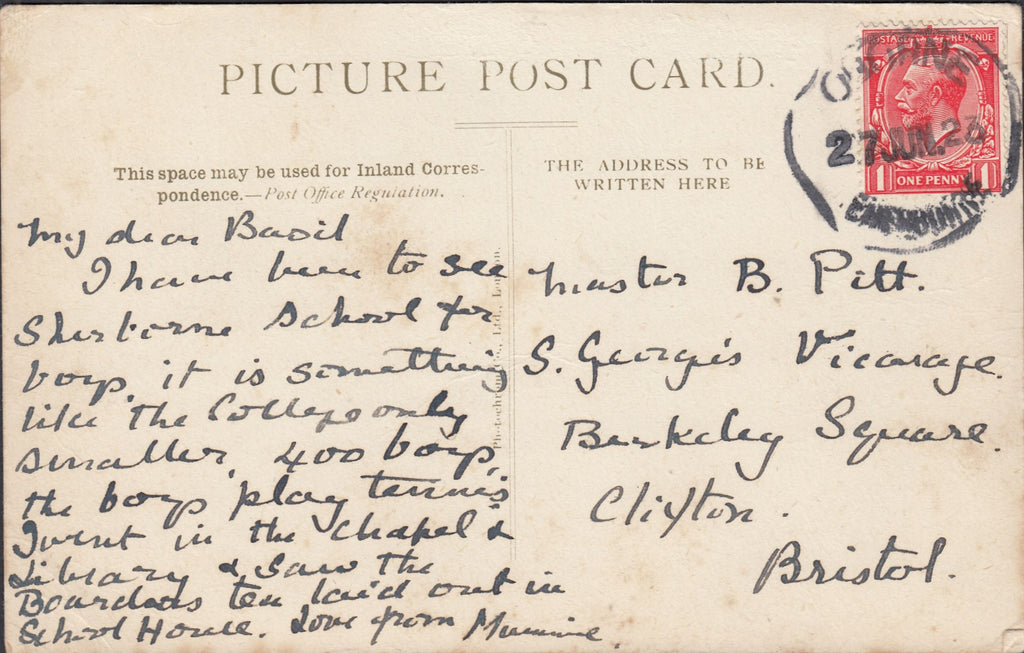 PICTURE POST CARD.
POSTAGE REVENUE
27 JUN. 23
ONE PENNY
1 1
BOURNEMOUTH
This space may be used for Inland Corres-
pondence.—Post Office Regulation.
THE ADDRESS TO BE
WRITTEN HERE
My dear Basil
I have been to see
Sherborne School for
boys, it is something
like the College only
smaller, 400 boys,
the boys play tennis
I went in the Chapel &
Library & saw the
Boarders tea laid out in
School House. Love from Mummie
Master B. Pitt.
S. George's Vicarage.
Berkeley Square.
Clifton.
Bristol.